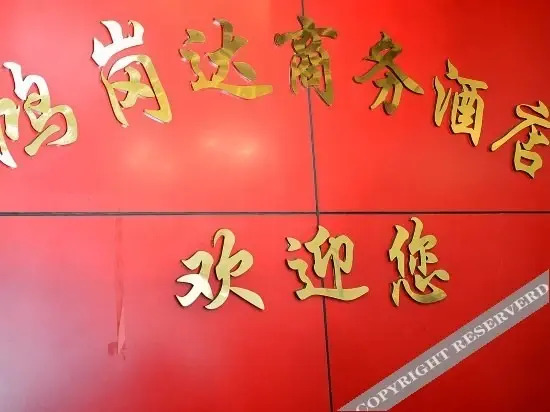 鸿岗达商务酒店
欢迎您
COPYRIGHT RESERVERD